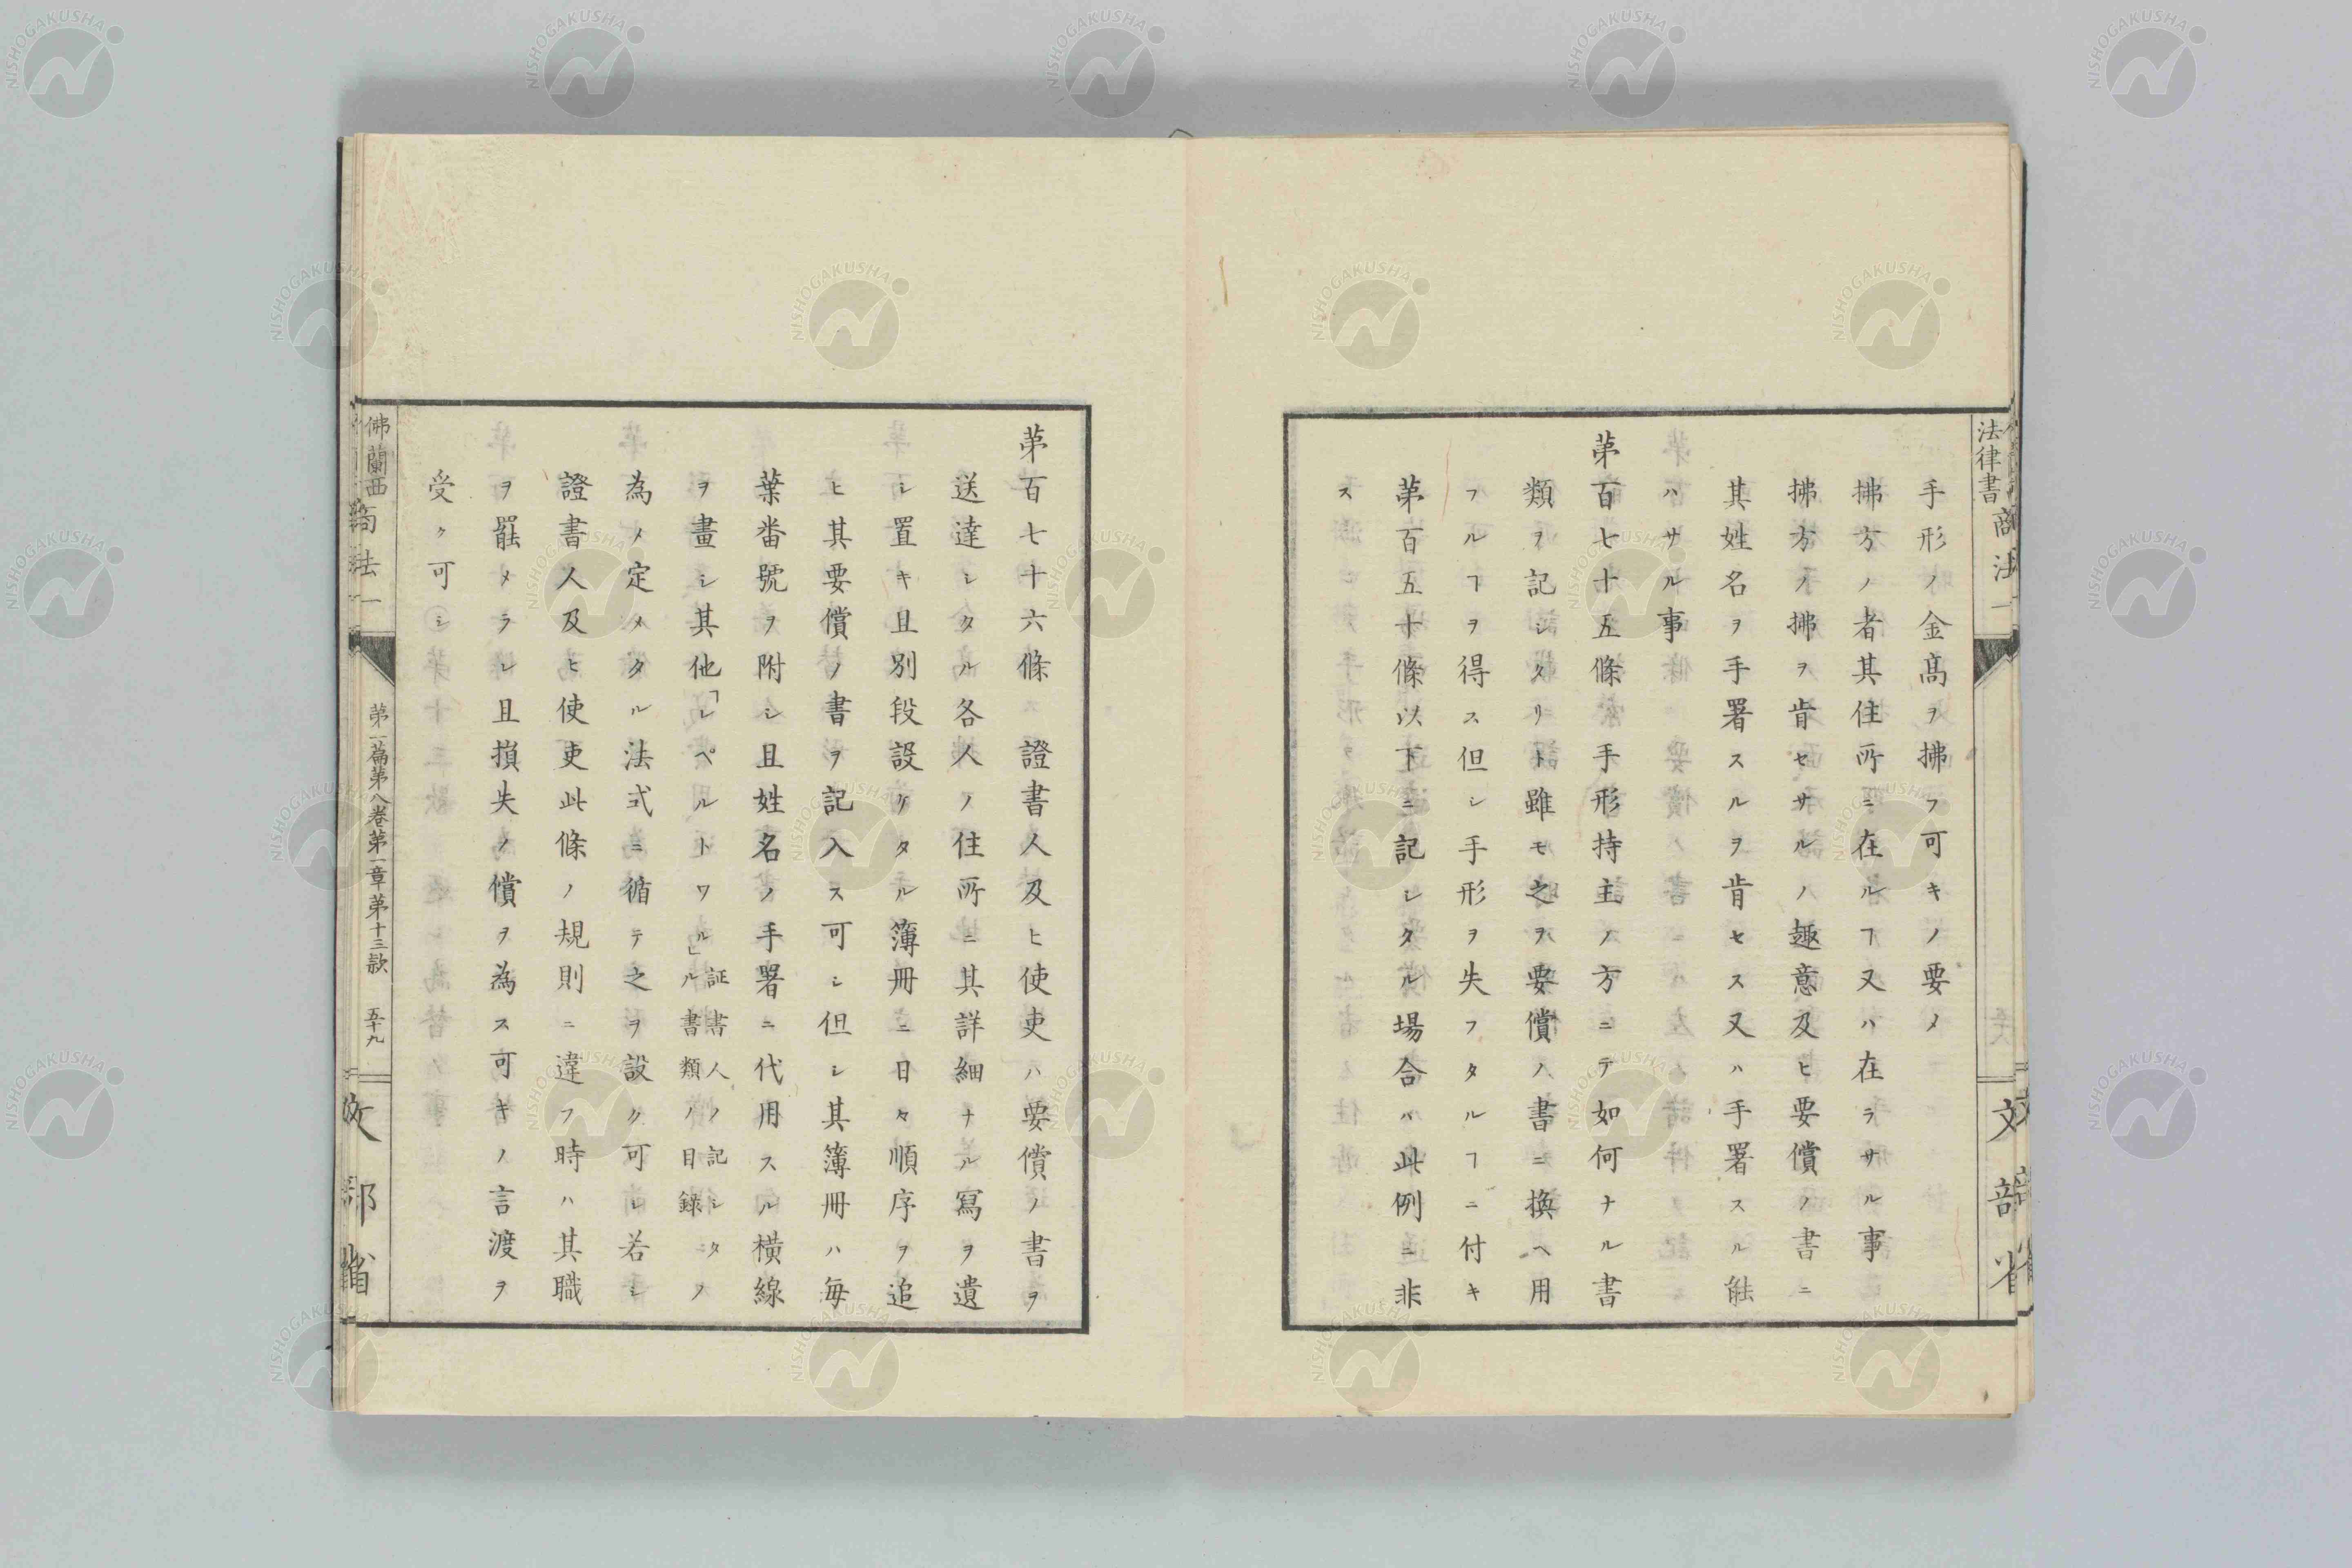 法律書 商法 一
文部省
手形ノ金髙ヲ拂フ可キノ要メ
拂方ノ者其住所ニ在ルヿ又ハ在ラサル事
拂方ノ拂ヲ肯セサルノ趣意及ヒ要償ノ書ニ
其姓名ヲ手署スルヲ肯セス又ハ手署スル能
ハサル事
苐百七十五條 手形持主ノ方ニテ如何ナル書
類ヲ記シタリト雖モ之ヲ要償ノ書ニ換ヘ用
フルヿヲ得ス但シ手形ヲ失フタルヿニ付キ
苐百五十條以下ニ記シタル場合ハ此例ニ非
ス
苐百七十六條 證書人及ヒ使吏ハ要償ノ書ヲ
送達シタル各人ノ住所ニ其詳細ナル寫ヲ遺
シ置キ且別段設ケタル簿冊ニ日々順序ヲ追
ヒ其要償ノ書ヲ記入ス可シ但シ其簿冊ハ毎
葉番號ヲ附シ且姓名ノ手署ニ代用スル橫線
ヲ畫シ其他「レペルトワル」証書人ノ記シタル書類ノ目録ノ
為メ定メタル法式ニ循テ之ヲ設ク可シ若シ
證書人及ヒ使吏此條ノ規則ニ違フ時ハ其職
ヲ罷メラレ且損失ノ償ヲ為ス可キノ言渡ヲ
受ク可シ
佛蘭西 商法 一
苐一篇苐八巻苐一章苐十三款 五十九
文部省
NISHOGAKUSHA